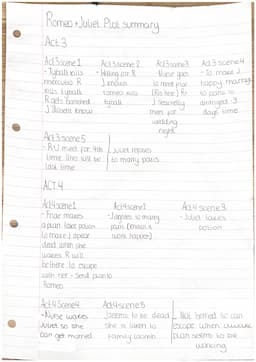 Romeo + Juliet Plot summary
Act 3
Act 3 scene 1
- Tybalt kills
mercutio R
kills tybalt
R gets banished
J doesn't know
Act 3 scene 2
- Waiting for R
J knows
romeo kills
tybalt
Act 3 scene 3
Nurse goes
to meet friar
R + J secretly
meet for
wedding
night
Act 3 scene 4
- To make J
happy marriage
to paris is
arranged 3
days time
Act 3 scene 5
- R + J meet for 4th
time this will be
last time
Juliet refuses
to marry paris
ACT 4
Act 4 scene 1
- Friar makes
a plan fake potion
to make J appear
dead when she
wakes R will
be there to escape
with her - send plan to
Romeo
Act 4 scene 1
- J agrees to marry
paris
won't happen)
Act 4 scene 3
- Juliet takes
potion
Act 4 Scene 4
- Nurse wakes
Juliet so she
can get married
Act 4 scene 5
J seems to be dead
she is taken to
family tomb
- Not buried so can
escape when awake
plan seems to be
working